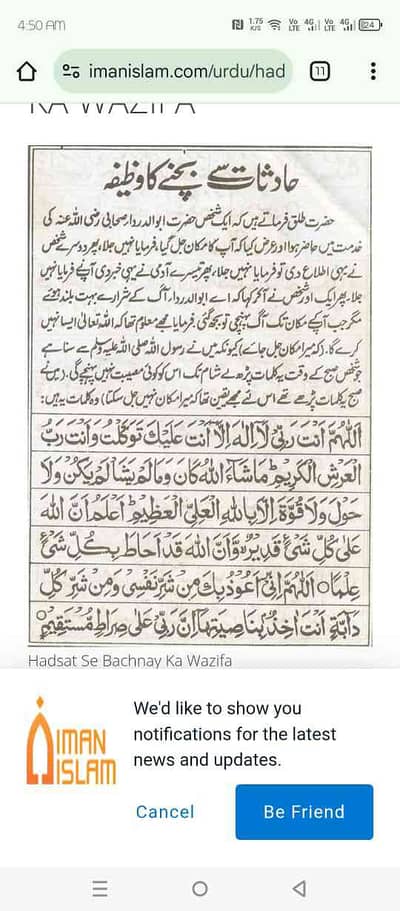 4:50 AM
1.75 K/S Vo LTE 4G Vo LTE 4G 24
imanislam.com/urdu/had
11
KA WAZIFA
حادثات سے بچنے کا وظیفہ
حضرت طلق فرماتے ہیں کہ ایک شخص حضرت ابوالدرداء صحابی رضی اللہ عنہ کی
خدمت میں حاضر ہوا اور عرض کیا کہ آپ کا مکان جل گیا، فرمایا نہیں جلا، پھر دوسرے شخص
نے یہی اطلاع دی تو فرمایا نہیں جلا، پھر تیسرے آدمی نے یہی خبر دی آپ نے فرمایا نہیں
جلا، پھر ایک اور شخص نے آکر کہا کہ اے ابوالدرداء، آگ کے شرارے بہت بلند ہوئے
مگر جب آپ کے مکان تک آگ پہنچی تو بجھ گئی، فرمایا مجھے معلوم تھا کہ اللہ تعالیٰ ایسا نہیں
کرے گا، (کہ میرا مکان جل جائے) کیونکہ میں نے رسول اللہ صلی اللہ علیہ وسلم سے سنا ہے
جو شخص صبح کے وقت یہ کلمات پڑھ لے شام تک اس کو کوئی مصیبت نہیں پہنچے گی، (میں نے
صبح یہ کلمات پڑھے تھے اس لئے مجھے یقین تھا کہ میرا مکان نہیں جل سکتا) وہ کلمات یہ ہیں:
اَللّٰهُمَّ اَنْتَ رَبِّیْ لَا اِلٰهَ اِلَّا اَنْتَ عَلَيْكَ تَوَكَّلْتُ وَاَنْتَ رَبُّ
الْعَرْشِ الْكَرِيْمِ مَاشَآءَ اللّٰهُ كَانَ وَمَالَمْ يَشَأْ لَمْ يَكُنْ وَلَا
حَوْلَ وَلَا قُوَّةَ اِلَّا بِاللّٰهِ الْعَلِیِّ الْعَظِيْمِ اَعْلَمُ اَنَّ اللّٰهَ
عَلٰی كُلِّ شَیْءٍ قَدِيْرٌ وَّاَنَّ اللّٰهَ قَدْ اَحَاطَ بِكُلِّ شَیْءٍ
عِلْمًا اَللّٰهُمَّ اِنِّیْ اَعُوْذُ بِكَ مِنْ شَرِّ نَفْسِیْ وَمِنْ شَرِّ كُلِّ
دَآبَّةٍ اَنْتَ اٰخِذٌ بِنَاصِيَتِهَا اِنَّ رَبِّیْ عَلٰی صِرَاطٍ مُّسْتَقِيْمٍ
Hadsat Se Bachnay Ka Wazifa
IMAN ISLAM
We'd like to show you
notifications for the latest
news and updates.
Cancel
Be Friend